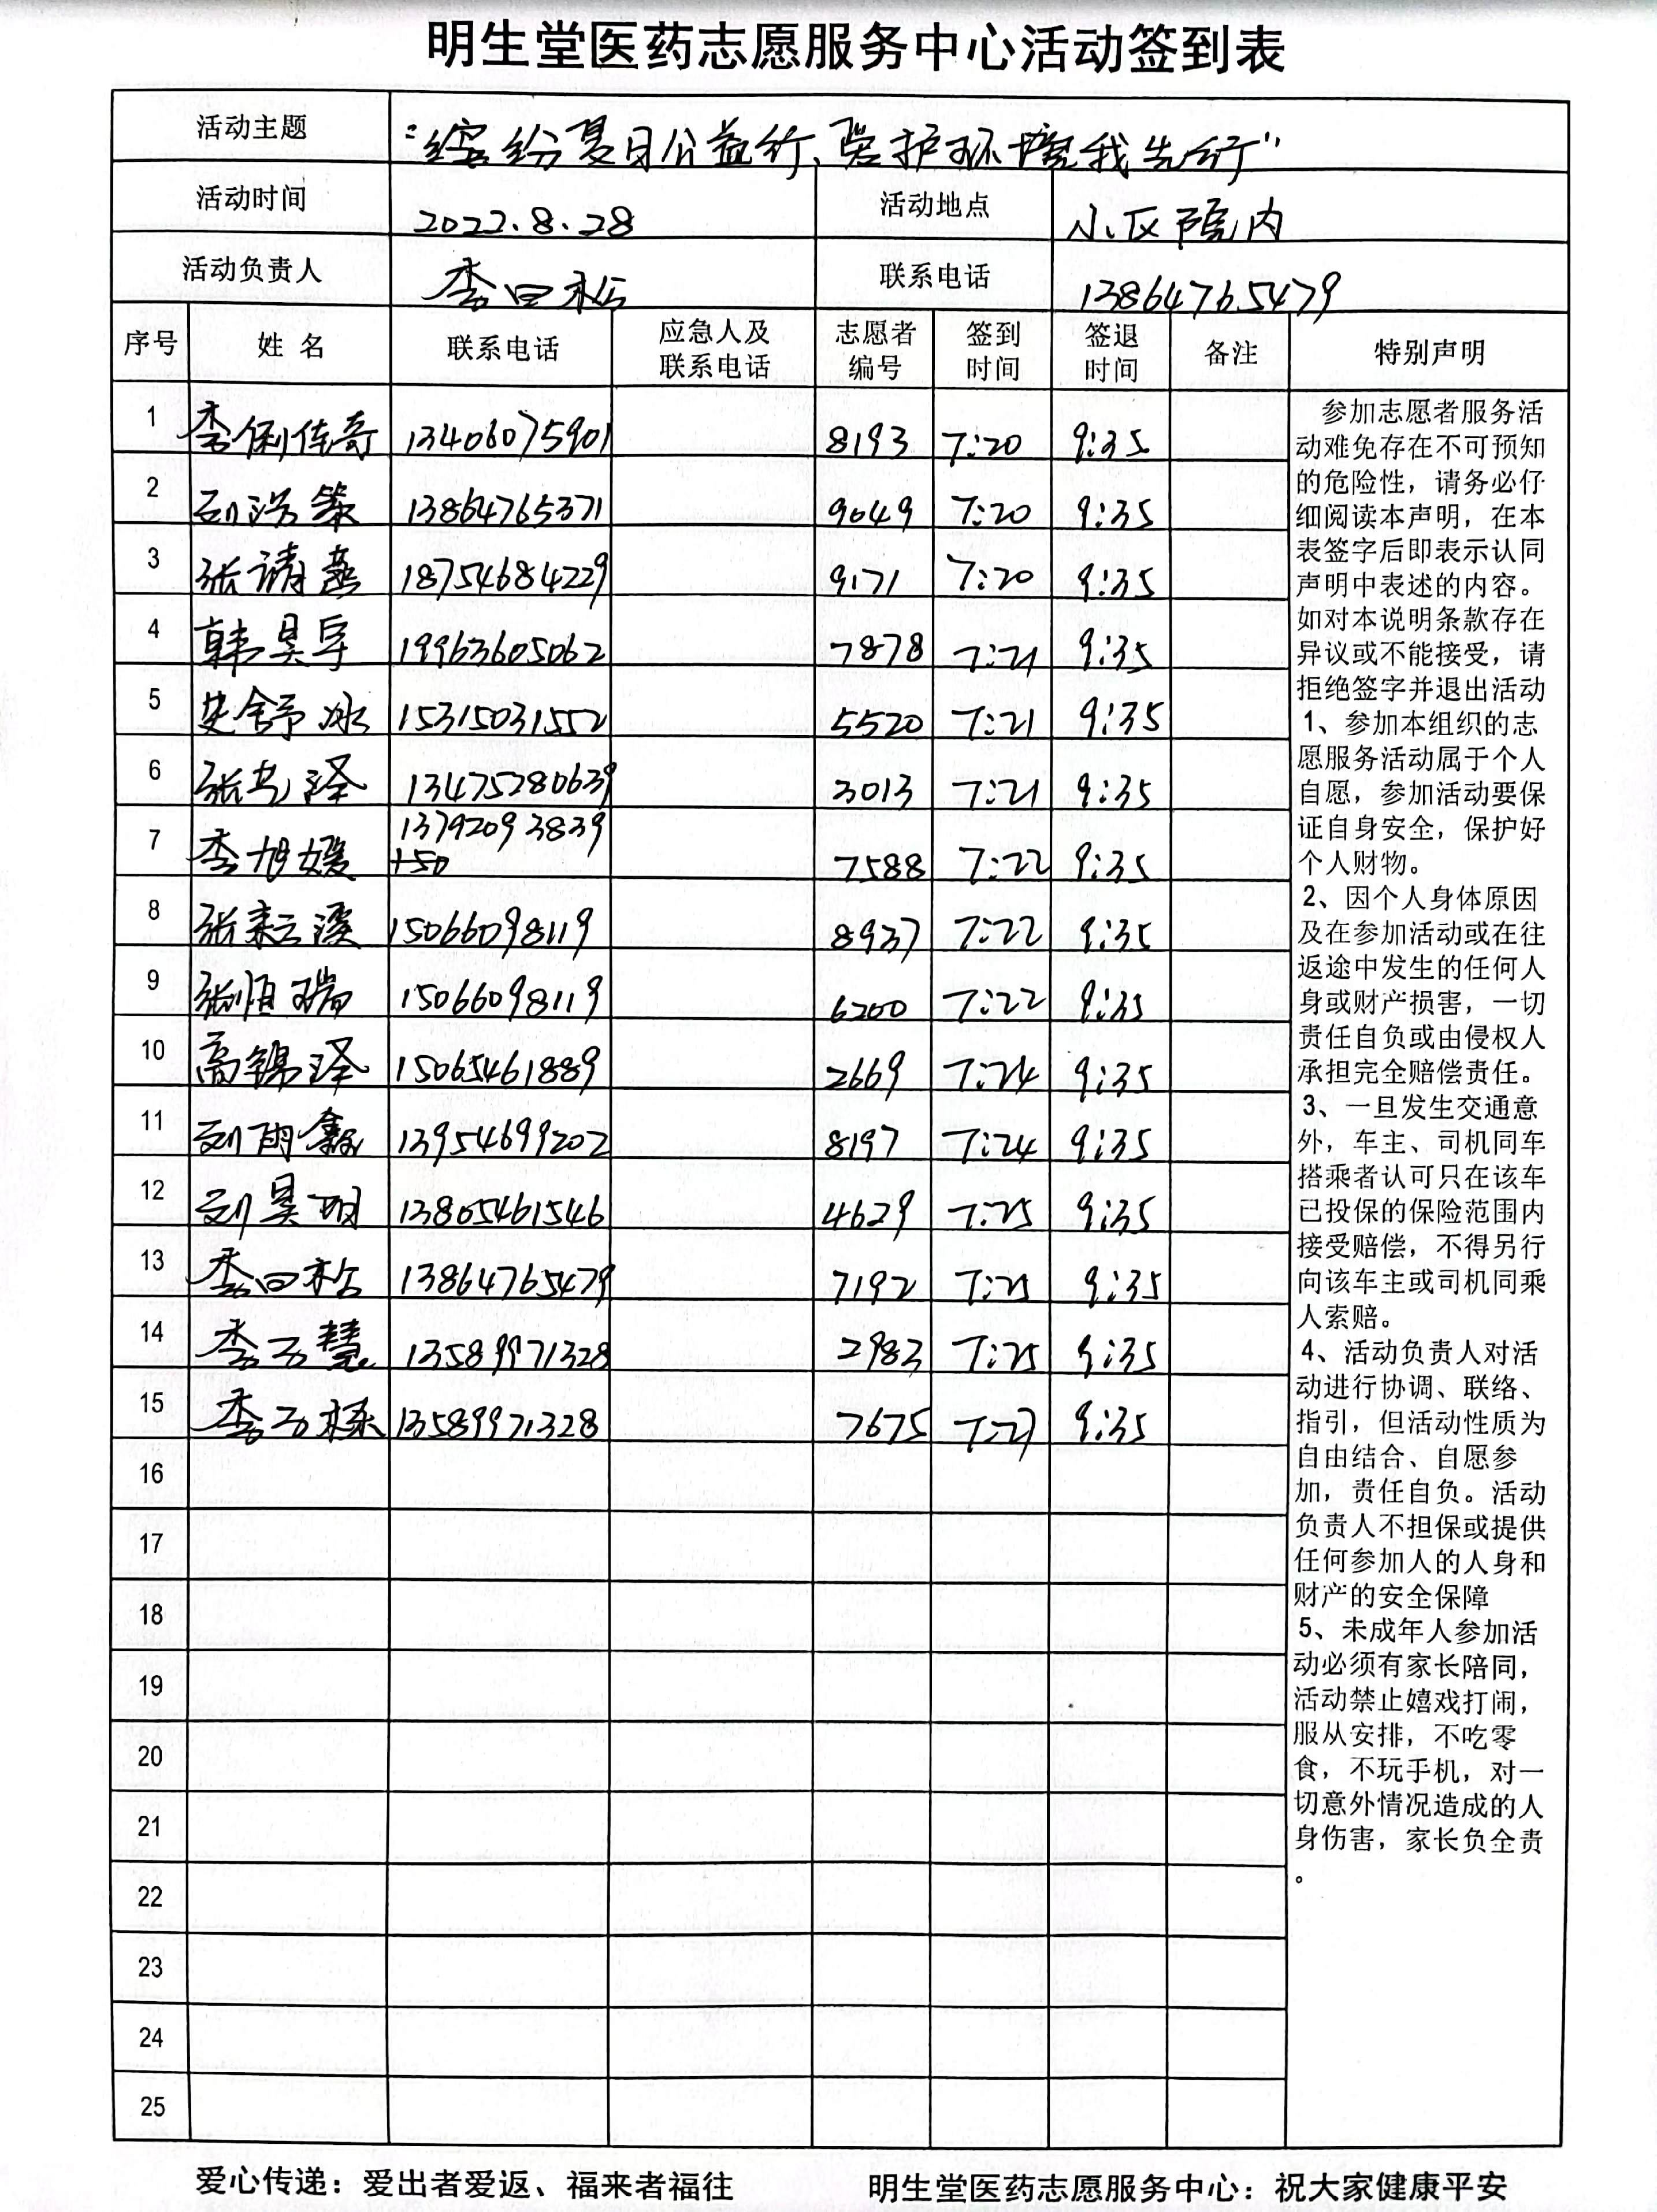 明生堂医药志愿服务中心活动签到表
活动主题 "缤纷夏日公益行、爱护环境我先行"
活动时间 2022.8.28 活动地点 小区院内
活动负责人 李曰松 联系电话 13864765479
序号 姓名 联系电话 应急人及联系电话 志愿者编号 签到时间 签退时间 备注 特别声明
1 李俐传奇 13406075901 8193 7:20 9:35
2 刘浩策 13864765371 9049 7:20 9:35
3 张清燕 18754684229 9171 7:20 9:35
4 韩昊宇 19963605062 7878 7:21 9:35
5 史舒冰 15315031552 5520 7:21 9:35
6 张 泽 13475280639 3013 7:21 9:35
7 李旭媛 13792093839 +50 7588 7:22 9:35
8 张耘溪 15066098119 8937 7:22 9:35
9 张恒瑞 15066098119 6200 7:22 9:35
10 高锦泽 15065461889 2669 7:24 9:35
11 刘雨鑫 13954699202 8197 7:24 9:35
12 刘昊 13805461546 4629 7:25 9:35
13 李曰松 13864765479 7192 7:25 9:35
14 李子慧 13589971328 2983 7:25 9:35
15 李子栋 13589971328 7675 7:27 9:35
16
17
18
19
20
21
22
23
24
25
参加志愿者服务活
动难免存在不可预知
的危险性，请务必仔
细阅读本声明，在本
表签字后即表示认同
声明中表述的内容。
如对本说明条款存在
异议或不能接受，请
拒绝签字并退出活动
1、参加本组织的志
愿服务活动属于个人
自愿，参加活动要保
证自身安全，保护好
个人财物。
2、因个人身体原因
及在参加活动或在往
返途中发生的任何人
身或财产损害，一切
责任自负或由侵权人
承担完全赔偿责任。
3、一旦发生交通意
外，车主、司机同车
搭乘者认可只在该车
已投保的保险范围内
接受赔偿，不得另行
向该车主或司机同乘
人索赔。
4、活动负责人对活
动进行协调、联络、
指引，但活动性质为
自由结合、自愿参
加，责任自负。活动
负责人不担保或提供
任何参加人的人身和
财产的安全保障
5、未成年人参加活
动必须有家长陪同，
活动禁止嬉戏打闹，
服从安排，不吃零
食，不玩手机，对一
切意外情况造成的人
身伤害，家长负全责
。
爱心传递：爱出者爱返、福来者福往 明生堂医药志愿服务中心：祝大家健康平安